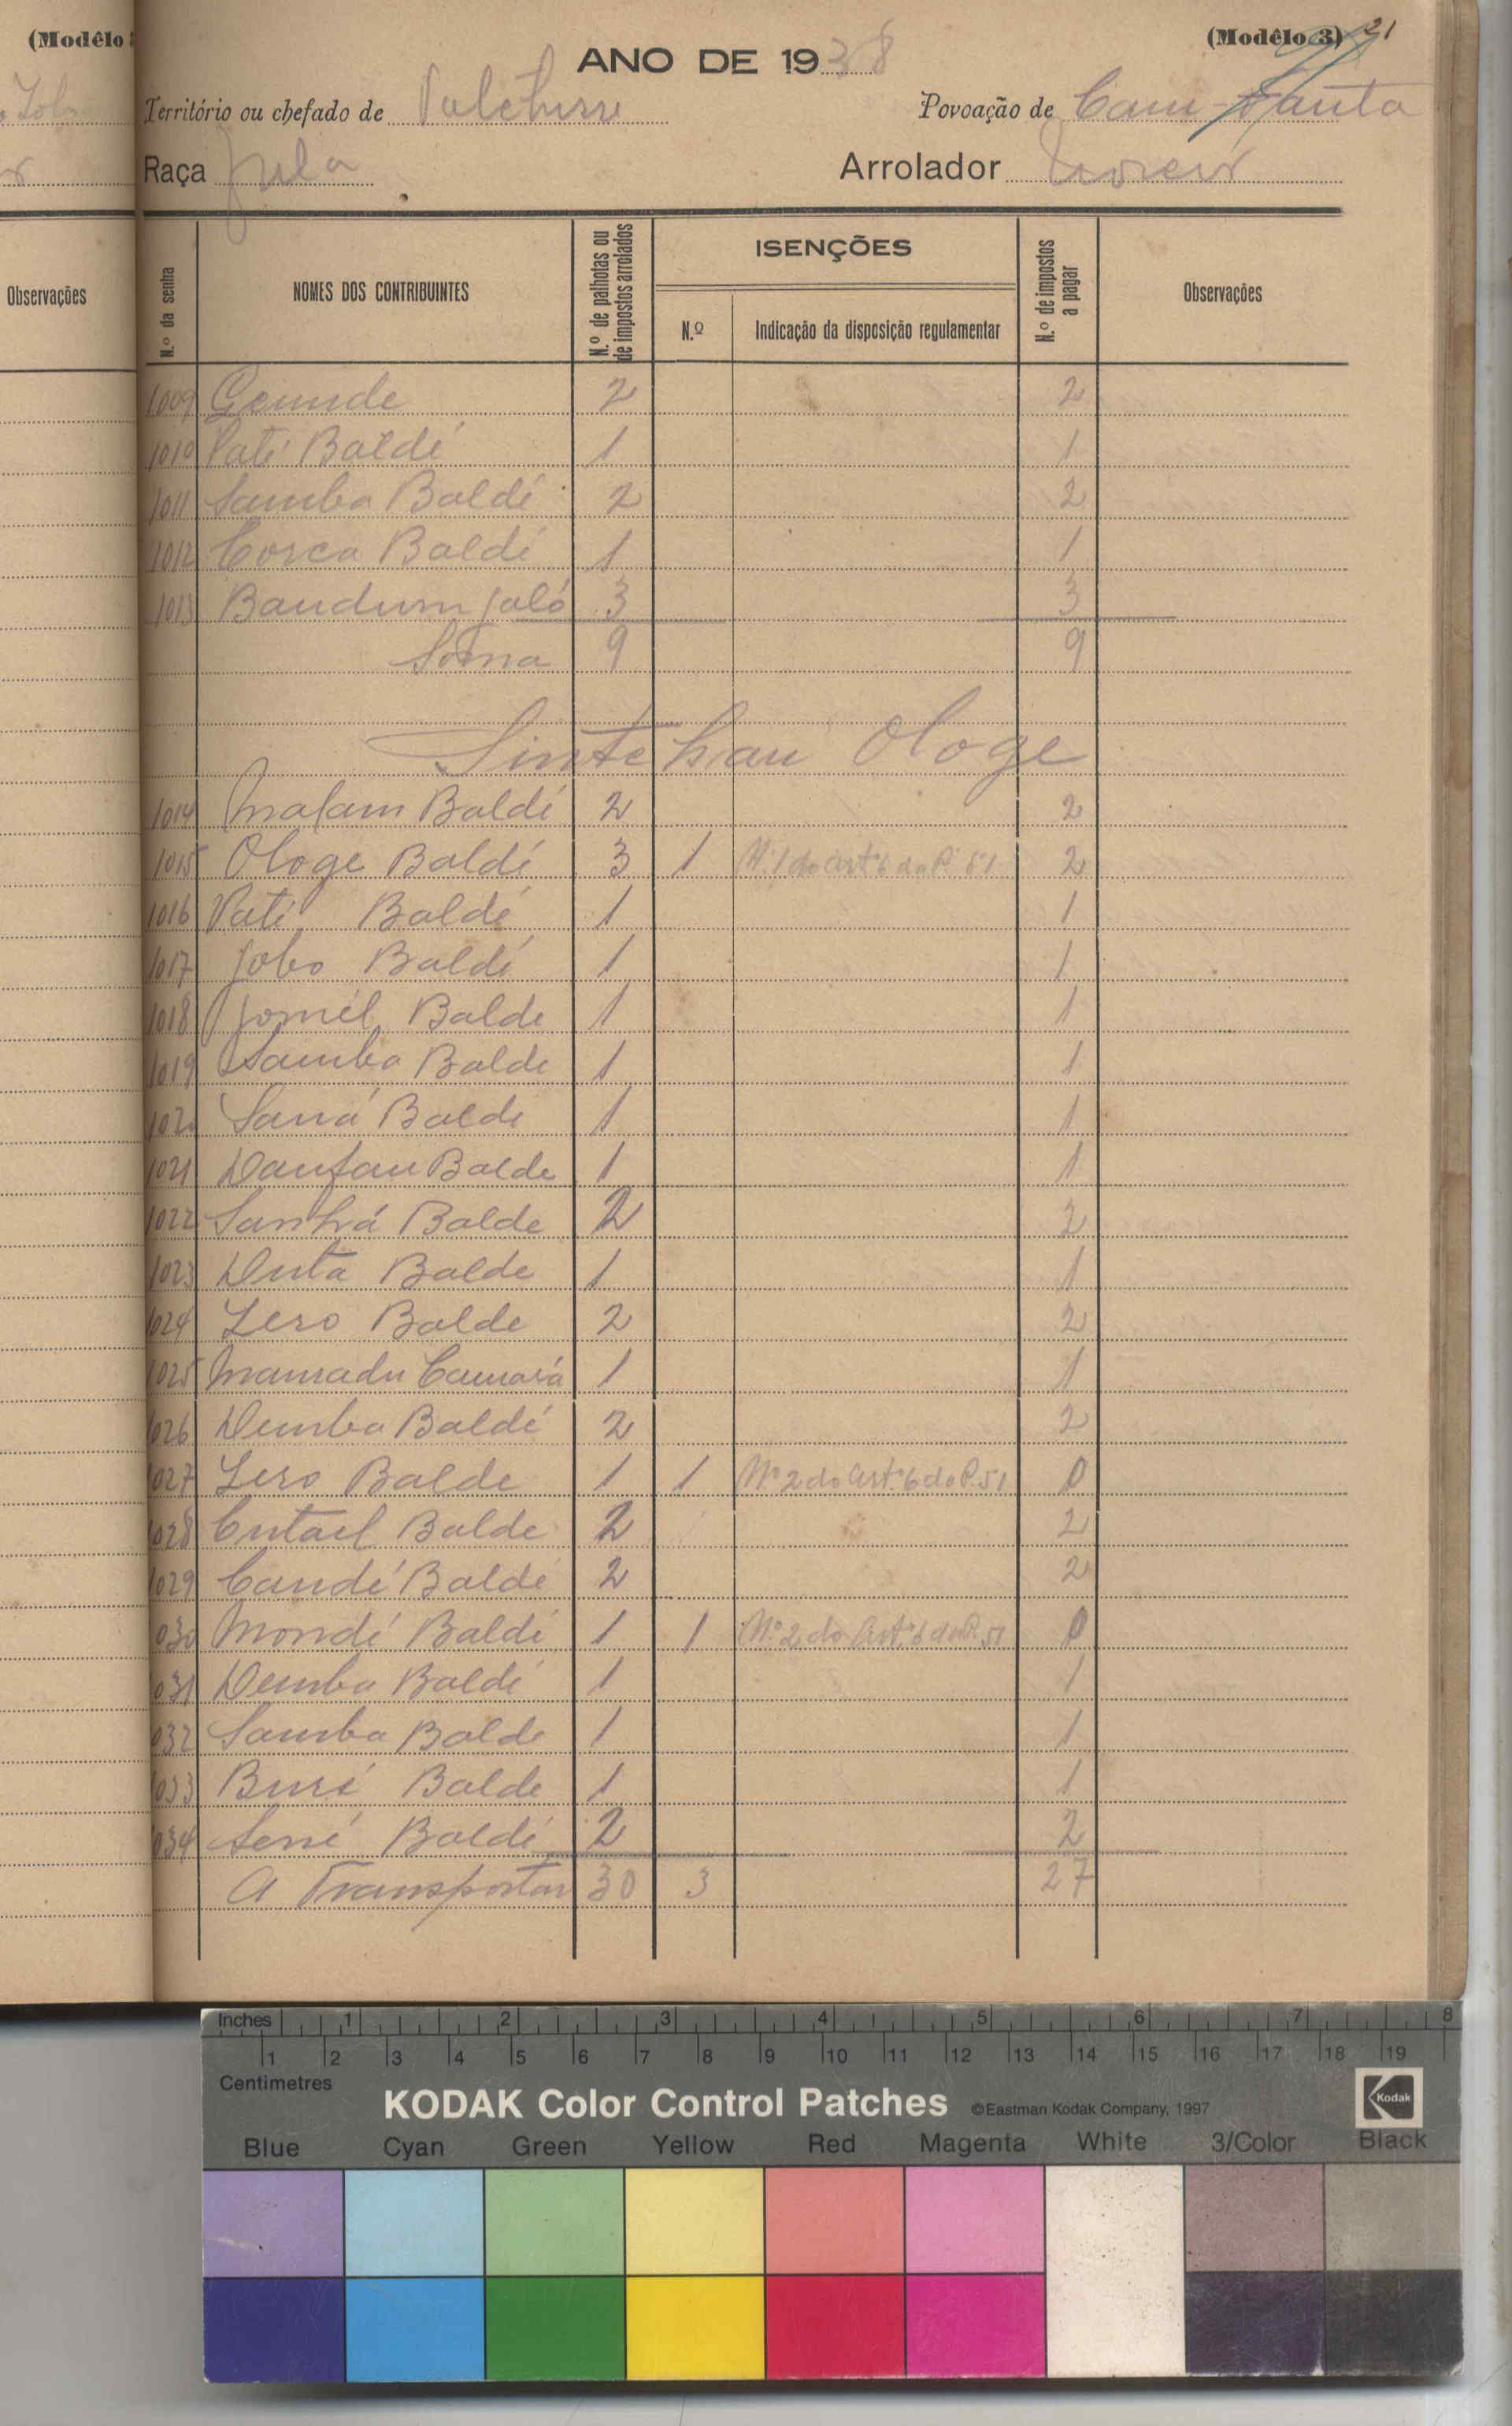 (Modêlo 3) 21
ANO DE 1938
Território ou chefado de
Povoação de Cam-Fanta
Raça Fula
Arrolador
N.º da senha
NOMES DOS CONTRIBUINTES
N.º de palhotas ou de impostos arrolados
ISENÇÕES
N.º
Indicação da disposição regulamentar
N.º de impostos a pagar
Observações
Observações
1009 Geunde 2 2
1010 Pati Baldé 1 1
1011 Samba Baldé 2 2
1012 Corca Baldé 1 1
1013 Baudum Jaló 3 3
Soma 9 9
Sinte hau Ologe
1014 Malam Baldé 2 2
1015 Ologe Baldé 3 1 N.º 1 do Artº 6 da P. 51 2
1016 Pati Baldé 1 1
1017 Jobo Baldé 1 1
1018 Jomel Balde 1 1
1019 Samba Balde 1 1
1020 Saná Balde 1 1
1021 Daufau Balde 1 1
1022 Sanhá Balde 2 2
1023 Duta Balde 1 1
1024 Lero Balde 2 2
1025 Mamadu Camará 1 1
1026 Demba Baldé 2 2
1027 Lero Balde 1 1 Nº 2 do Art.º 6 da P. 51 0
1028 Cutael Balde 2 2
1029 Candé Baldé 2 2
1030 Mondé Baldé 1 1 Nº 2 do Art.º 6 da P. 51 0
1031 Demba Baldé 1 1
1032 Samba Balde 1 1
1033 Buré Balde 1 1
1034 Sené Baldé 2 2
A Transportar 30 3 27
Inches 1 2 3 4 5 6 7 8
1 2 3 4 5 6 7 8 9 10 11 12 13 14 15 16 17 18 19
Centimetres
KODAK Color Control Patches ©Eastman Kodak Company, 1997 Kodak
Blue Cyan Green Yellow Red Magenta White 3/Color Black